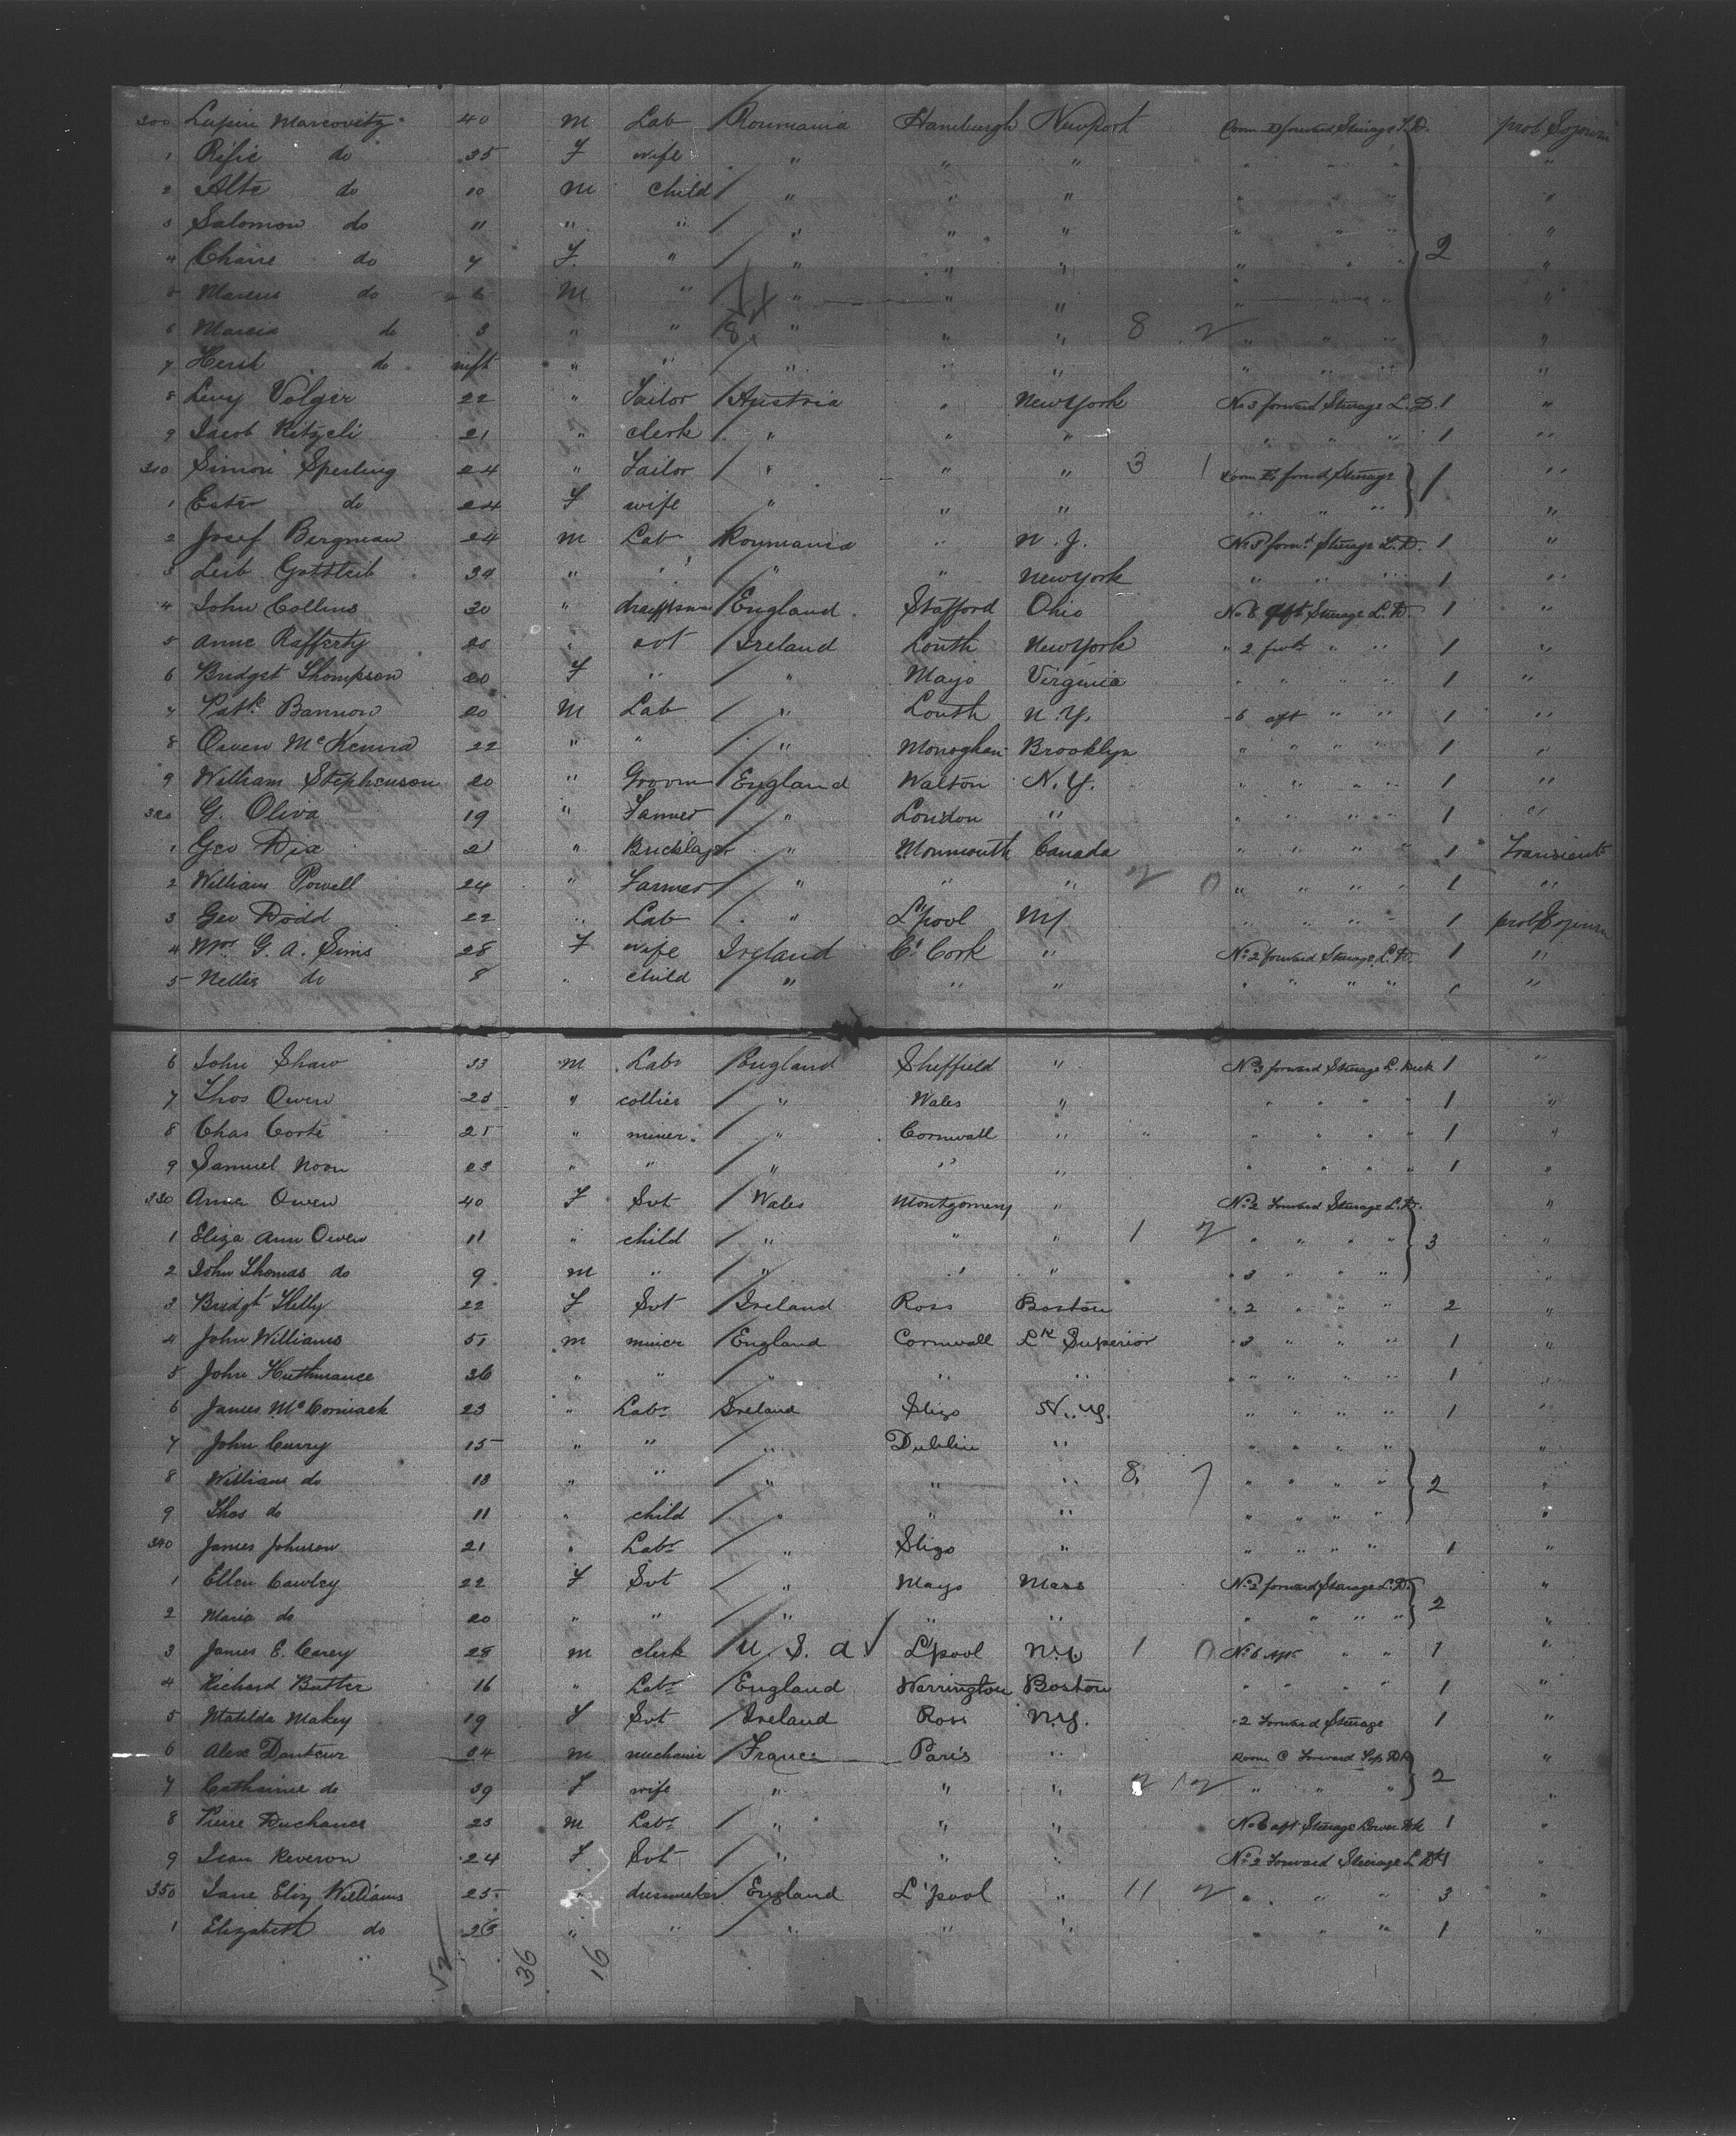 300 Lupin Marcovitz 40 m Lab Roumania Hamburgh Newport Room D forward Sterage L.D. prob Sojourn
1 Rific do 35 F wife " " " " " " "
2 Alte do 10 m child " " " " " " "
3 Salomon do 11 " " " " " " " " "
4 Chaire do 7 F " " " " " " " 2 "
5 Marcus do 6 M " " " " " " "
6 Marcia do 3 " " 8 " " " 8 2 " " " "
7 Hersh do inft " " " " " " " " "
8 Levy Volger 22 " Tailor Austria " New York No 3 forward Sterage L.D. 1 "
9 Jacob Ritzeli 21 " clerk " " " " " " 1 "
310 Simon Sperling 24 " Tailor " " " 3 1 Room E forwd Sterage 1 "
1 Ester do 24 F wife " " " " " " "
2 Josef Bergman 24 m Lab Roumania " N.J. No 3 forwd Sterage L.D. 1 "
3 Leib Gottleib 34 " " " " New York " " " 1 "
4 John Collins 30 " draughtsman England Stafford Ohio No 6 aft Sterage L.D. 1 "
5 Anne Rafferty 20 " svt Ireland Louth New York " 2 fwd " " 1 "
6 Bridget Thompson 20 F " " Mayo Virginia " " " " 1 "
7 Patk Bannon 20 M Lab " Louth N.Y. " 6 aft " " 1 "
8 Owen McKenna 22 " " " Monoghan Brooklyn " " " " 1 "
9 William Stephenson 20 " Groom England Walton N.Y. " " " " 1 "
320 G. Oliva 19 " Farmer " London " " " " " 1 "
1 Geo Dix 21 " Bricklayer " Monmouth Canada " " " " 1 Transient
2 William Powell 24 " Farmer " " " 2 0 " " " " 1 "
3 Geo Dodd 22 " Lab " L'pool NY " " " " 1 prob Sojourn
4 Mrs G. A. Sims 28 F wife Ireland Co Cork " No 2 forward Sterage L.D. 1 "
5 Nellie do 8 " child " " " " " " " "
6 John Shaw 33 m Labr England Sheffield " No 3 forward Sterage L. Deck 1 "
7 Thos Owen 23 " collier " Wales " " " " " 1 "
8 Chas Corte 25 " miner " Cornwall " " " " " 1 "
9 Samuel Noon 23 " " " " " " " " " 1 "
330 Anna Owen 40 F Svt Wales Montgomery " No 2 Forward Sterage L.D. "
1 Eliza Ann Owen 11 " child " " " 1 2 " " " " 3 "
2 John Thomas do 9 m " " " " " 3 " " " "
3 Bridgt Kelly 22 F Svt Ireland Ross Boston " 2 " " " 2 "
4 John Williams 51 m miner England Cornwall Lke Superior " 3 " " " 1 "
5 John Huthnance 36 " " " " " " " " " 1 "
6 James McCormack 23 " Labr Ireland Sligo N.Y. " " " " 1 "
7 John Curry 15 " " " Dublin " " " " " "
8 William do 13 " " " " " 8 7 " " " " 2 "
9 Thos do 11 " child " " " " " " " "
340 James Johnson 21 " Labr " Sligo " " " " " 1 "
1 Ellen Cawley 22 F Svt " Mayo Mass No 2 forward Sterage L.D. 2 "
2 Maria do 20 " " " " " " " " " "
3 James E. Carey 28 m clerk U. S. A ✓ L'pool N.Y. 1 0 No 6 Aft " " 1 "
4 Richard Butler 16 " Labr England Warrington Boston " " " " 1 "
5 Matilda Makey 19 F Svt Ireland Ross N.Y. " 2 Forward Sterage 1 "
6 Alex Danteur 34 m mechanic France Paris " Room C Forward Top Dk "
7 Catharine do 39 F wife " " " 2 2 " " " 2 "
8 Pierre Duchance 23 m Labr " " " No 6 aft Sterage Lower Dk 1 "
9 Jean Reveron 24 F Svt " " " No 2 Forward Sterage L Dk 1 "
350 Jane Eliz Williams 25 " dressmaker England L'pool " 11 2 " " " 3 "
1 Elizabeth do 23 " " " " " " " " 1 "
52 36 16